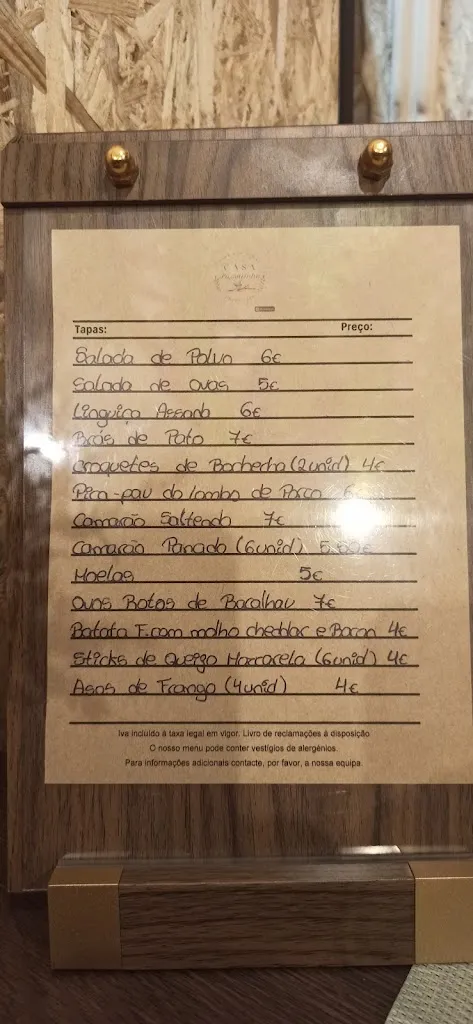 CASA
Tapas: Preço:
Salada de Polvo 6€
Salada de Ovas 5€
Linguiça Assada 6€
Brás de Pato 7€
Croquetes de Bochecha (2unid) 4€
Pica-pau do lombo de Porco 6
Camarão Salteado 7€
Camarão Panado (6unid)
Moelas 5€
Ovos Rotos de Bacalhau 7€
Batata F. com molho cheddar e Bacon 4€
Sticks de Queijo Mozzarela (6unid) 4€
Asas de Frango (4unid) 4€
Iva incluído à taxa legal em vigor. Livro de reclamações à disposição
O nosso menu pode conter vestígios de alergénios.
Para informações adicionais contacte, por favor, a nossa equipa.